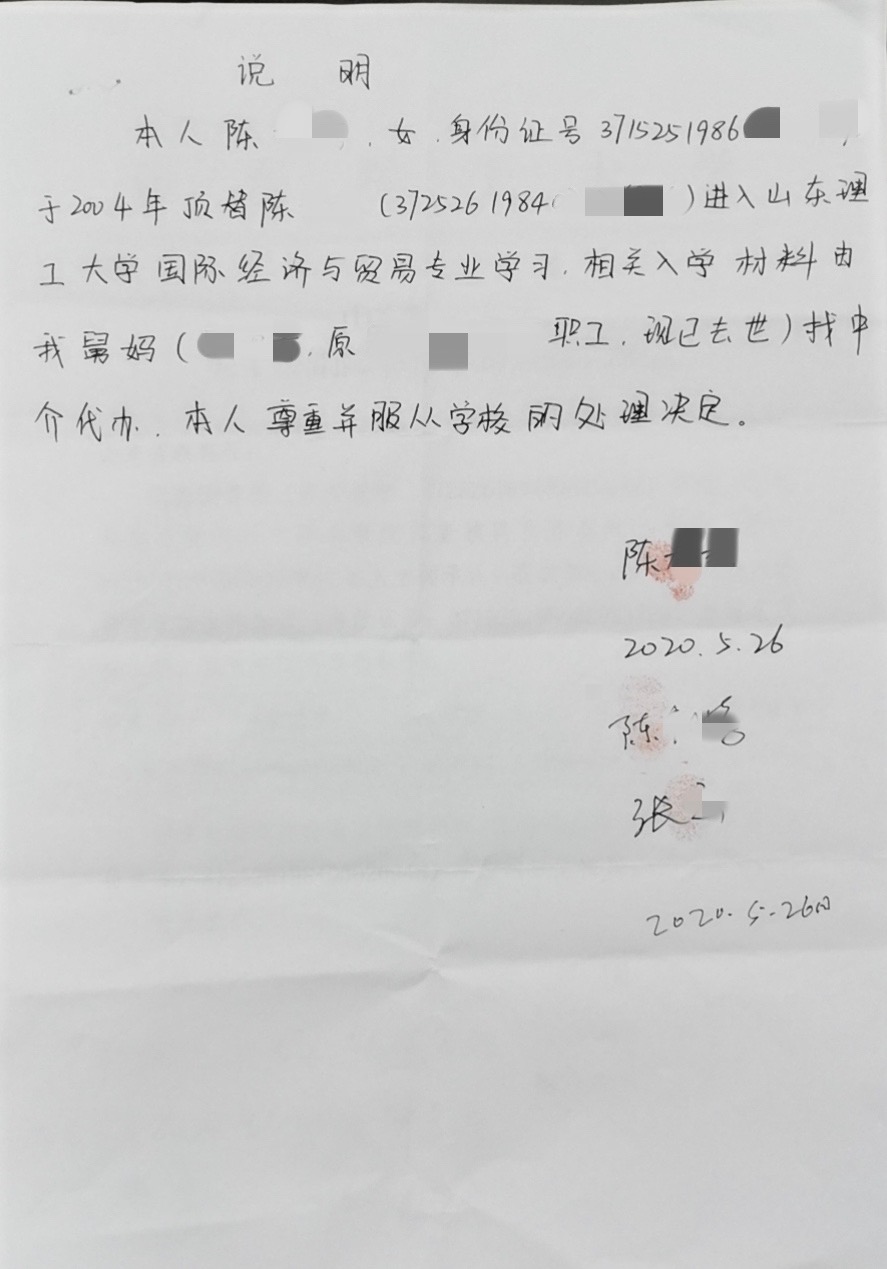 说 明
本人陈 , 女, 身份证号 3715251986 ,
于2004年顶替陈 (3725261984 )进入山东理
工大学国际经济与贸易专业学习, 相关入学材料由
我舅妈( , 原 职工, 现已去世)找中
介代办. 本人尊重并服从学校的处理决定。
陈
2020.5.26
陈
张
2020.5.26日